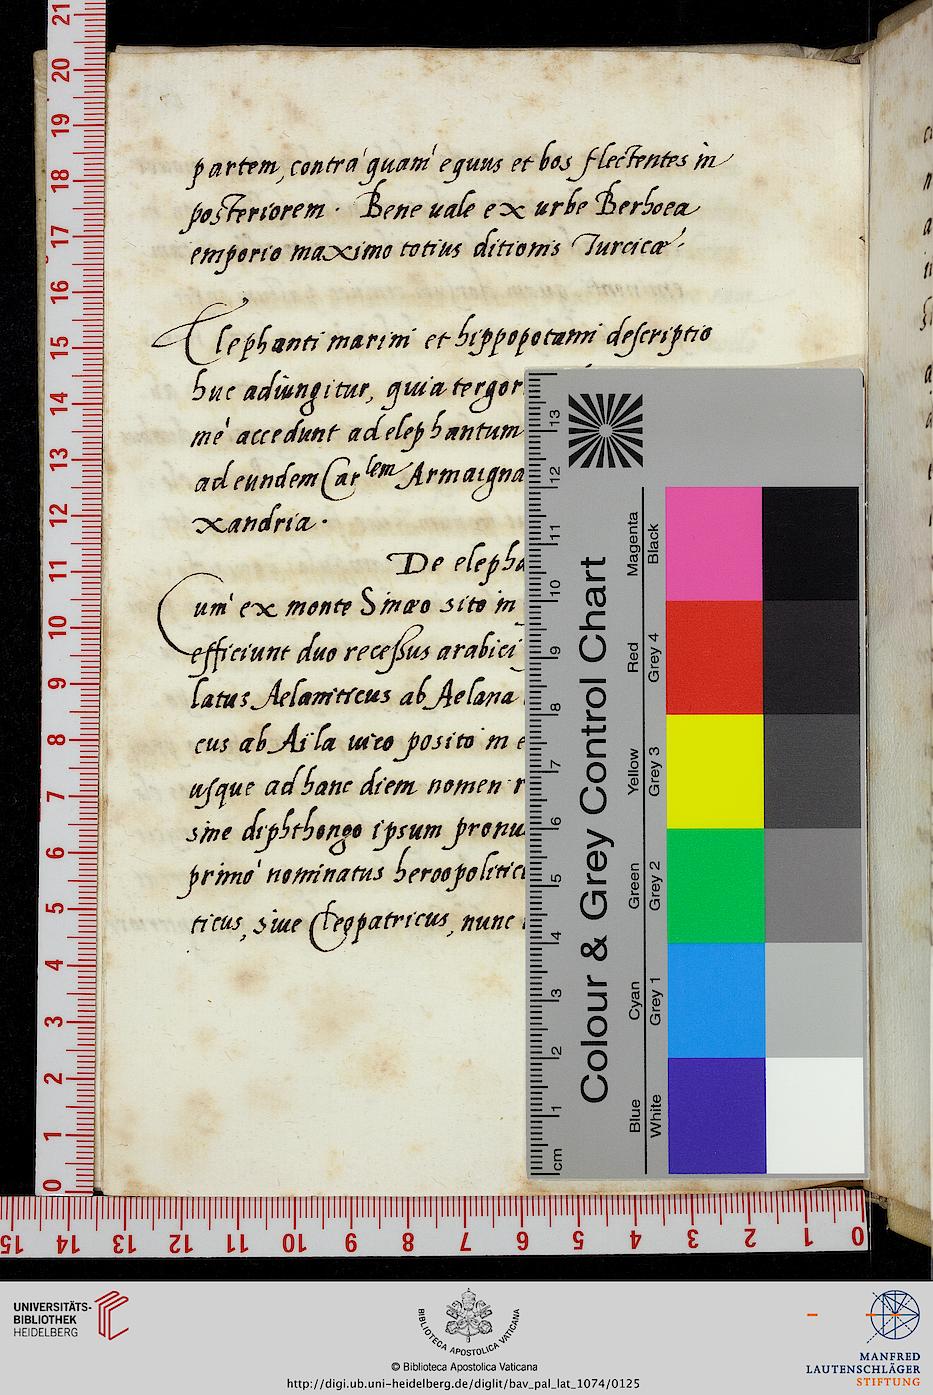 partem, contrà quam equus et bos flectentes in
posteriorem. Bene uale ex urbe Berhoea
emporio maximo totius ditionis Turcicæ.
Elephanti marini et hippopotami descriptio
huc adiungitur, quia tergor
mè accedunt ad elephantum
ad eundem Carlem Armaigna
xandria.
De elepha
Cum ex monte Sinæo sito in
efficiunt duo recessus arabici
latus Aelaniticus ab Aelana
cus ab Aila uico posito in e
usque ad hanc diem nomen r
sine diphthongo ipsum pronu
primò nominatus heroopolitic
ticus, siue Cleopatricus, nunc
Colour & Grey Control Chart
Magenta
Black
Red
Grey 4
Yellow
Grey 3
Green
Grey 2
Cyan
Grey 1
Blue
White
cm 1 2 3 4 5 6 7 8 9 10 11 12 13
21
20
19
18
17
16
15
14
13
12
11
10
9
8
7
6
5
4
3
2
1
0
15 14 13 12 11 10 9 8 7 6 5 4 3 2 1 0
UNIVERSITÄTS-
BIBLIOTHEK
HEIDELBERG
BIBLIOTECA APOSTOLICA VATICANA
© Biblioteca Apostolica Vaticana
http://digi.ub.uni-heidelberg.de/diglit/bav_pal_lat_1074/0125
MANFRED
LAUTENSCHLÄGER
STIFTUNG